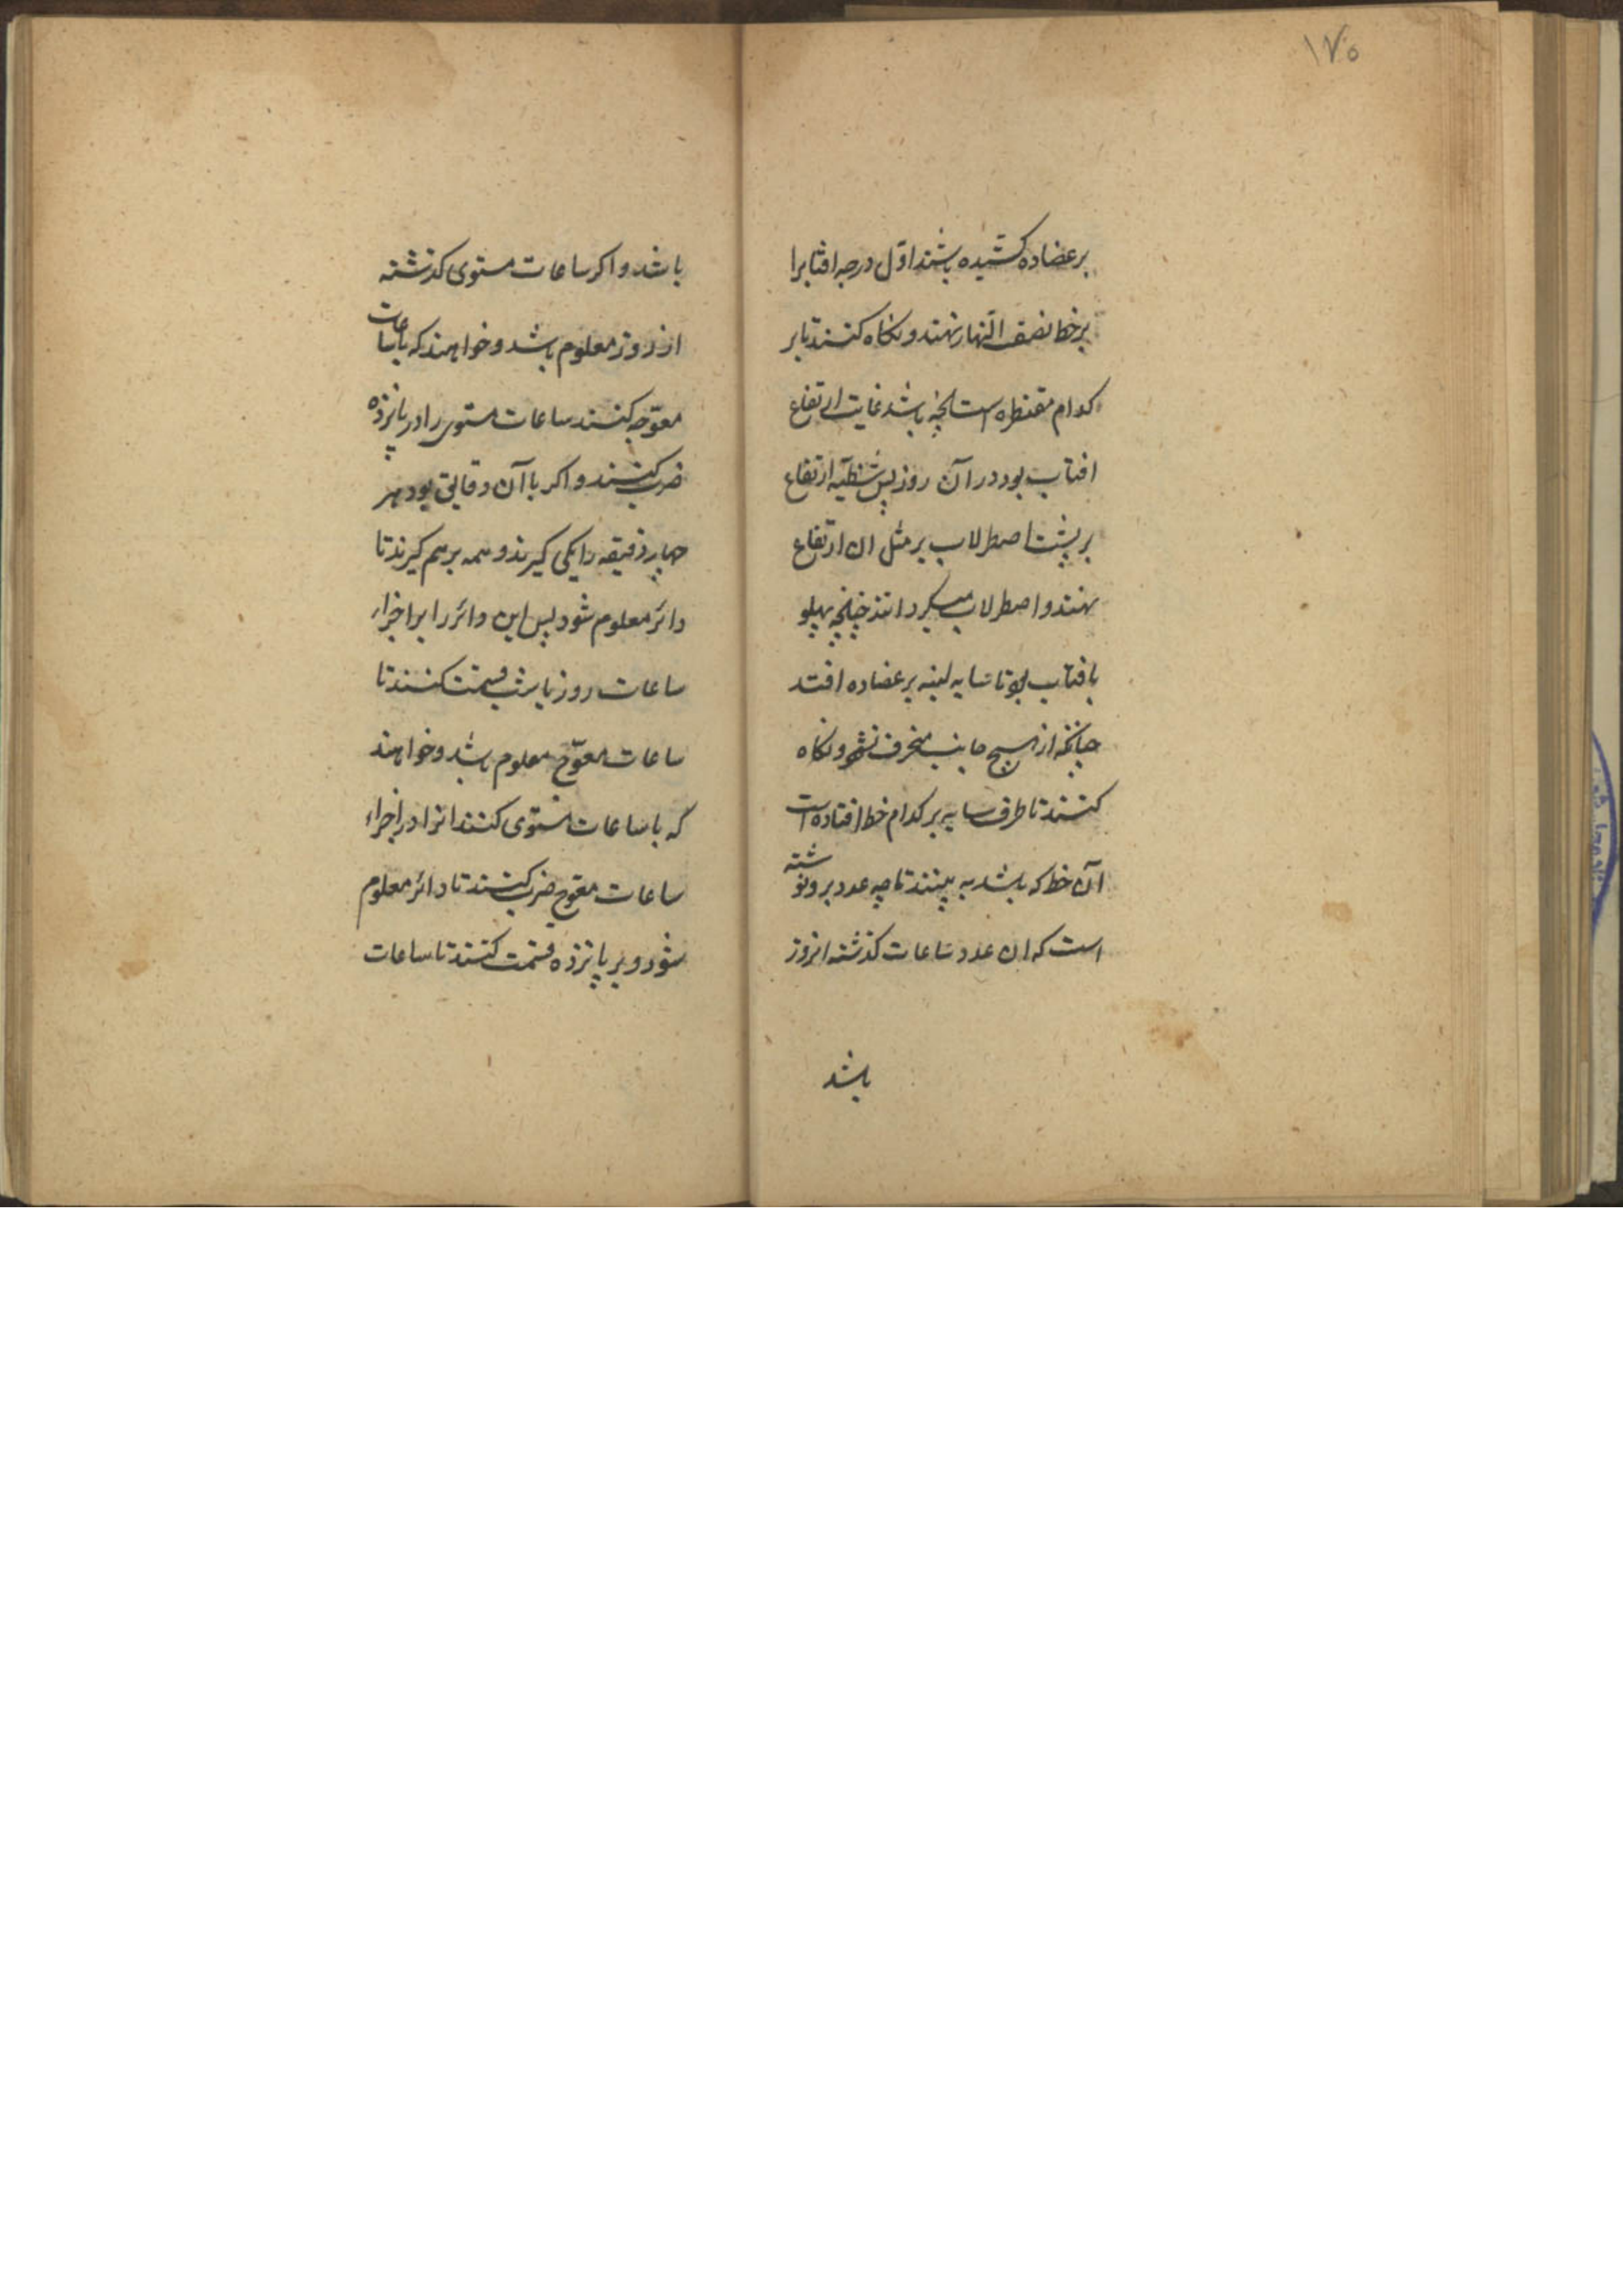 ۱۷۵
بر عضاده کشیده باشند اوّل درجه افتابرا
بر خط نصف النّهار نهند و نکاه کنند تا بر
کدام مقنطره است انچه باشد غایت ارتفاع
افتاب بود در آن روز پس شظیّه ارتفاع
بر پشت اصطرلاب بر مثل ان ارتفاع
نهند و اصطرلاب میکردانند چنانچه پهلو
بافتاب بود تا سایه لبنه بر عضاده افتد
چنانکه از هیچ جانب منحرف نشود و نکاه
کنند تا طرف سایه بر کدام خط افتاده است
آن خط که باشد به بینند تا چه عدد برو نوشته
است که ان عدد ساعات کذشته از روز
باشد
باشد و اکر ساعات مستوی کذشته
از روز معلوم باشد و خواهند که با ساعات
معوّجه کنند ساعات مستوی را در پانزده
ضرب کنند و اکر با آن دقایق بود هر
چهار دقیقه را یکی کیرند و همه بر هم کیرند تا
دائر معلوم شود پس این دائر را بر اجزاء
ساعات روز یا شب قسمت کنند تا
ساعات معوّج معلوم باشد و خواهند
که با ساعات مستوی کنند انرا در اجزاء
ساعات معوّج ضرب کنند تا دائر معلوم
شود و بر پانزده قسمت کنند تا ساعات